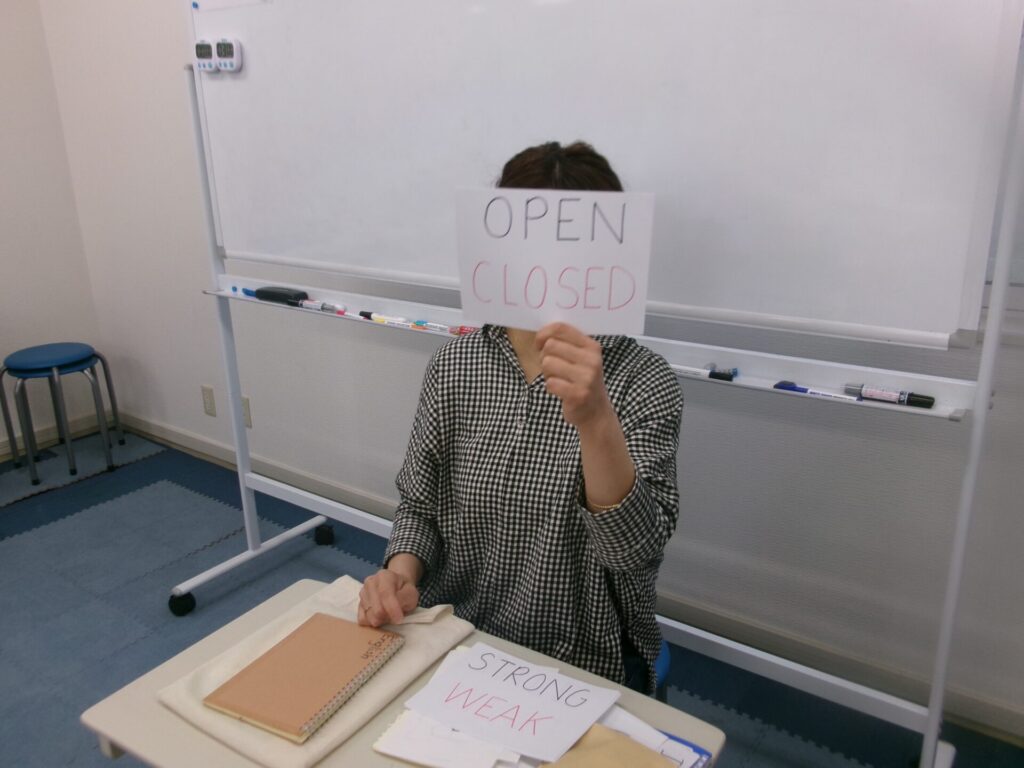 OPEN
CLOSED
STRONG
WEAK